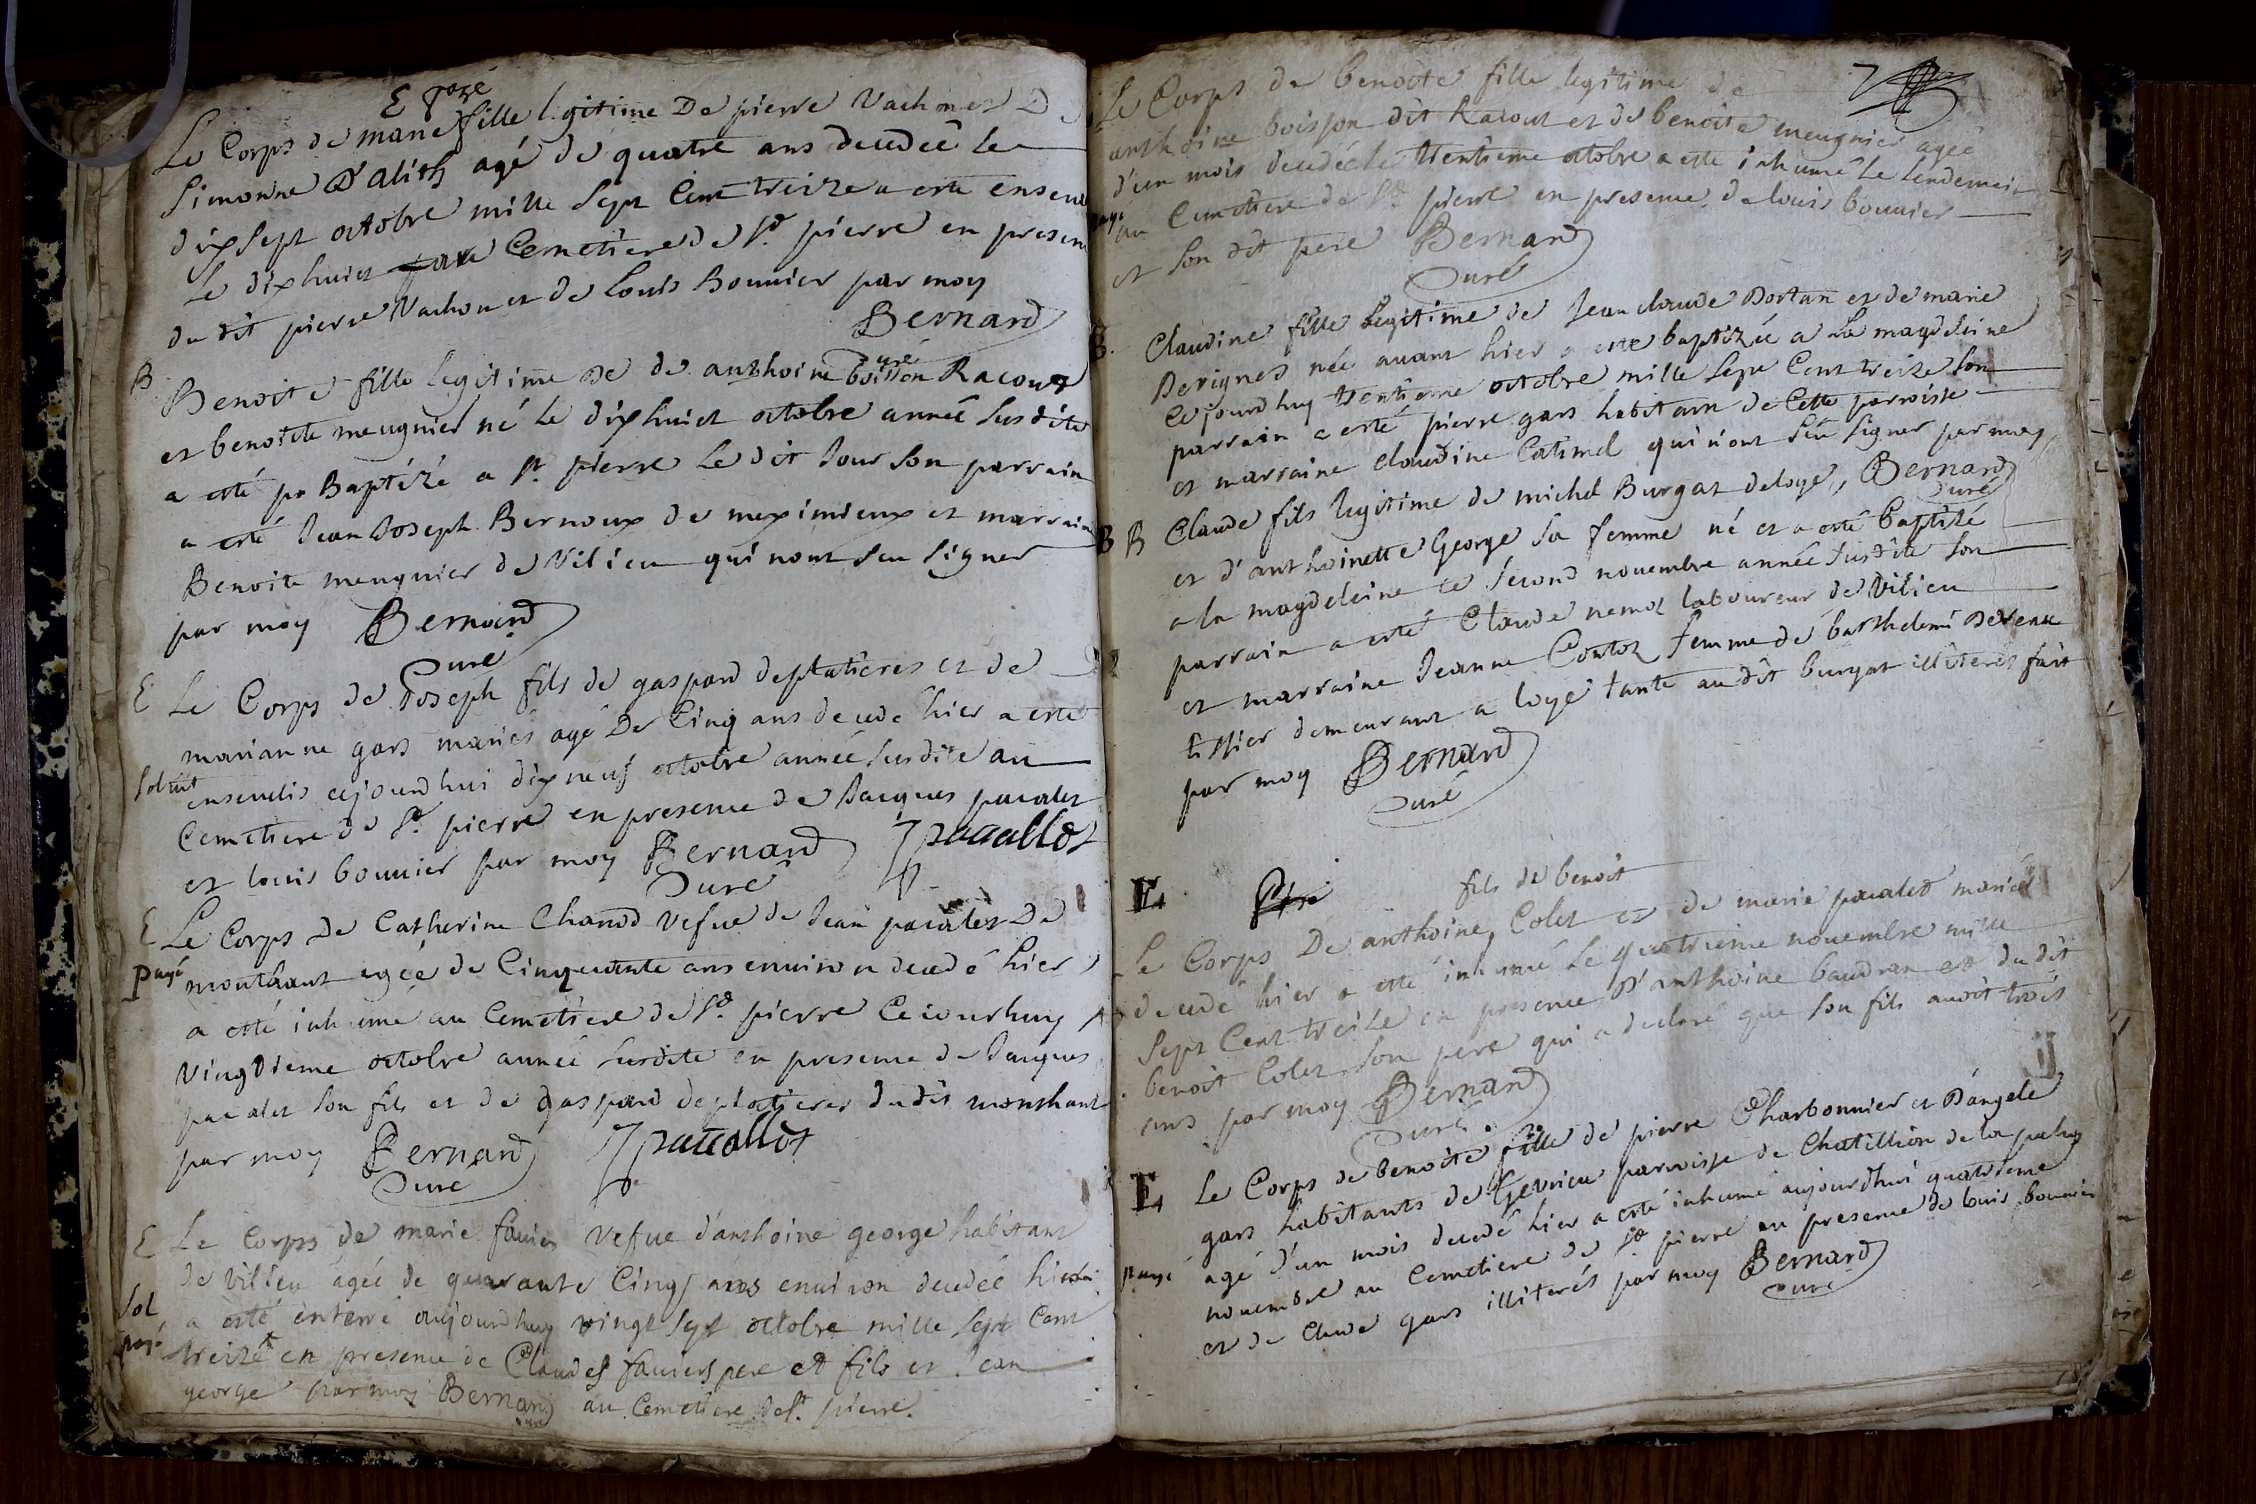 E payé
Le Corps de marie fille legitime De pierre Vachon et De
Simonne D'alith agé de quatre ans decedeé le
dixsept octobre mille sept Cent treize a esté enseuel
le dixhuict au Cemetiere de St. pierre en presen
du dit pierre Vachon et de Louis Bouuier par moy
Bernard
Curé
B
Benoite fille legitime de de anthoine boisson Racout
et benoite meugnier né le dixhuict octobre année susdite
a esté Baptizé a St. pierre le dit Jour son parrain
a esté Jean Joseph Bernoux de meximieux et marraine
Benoite meugnier de Vilieu qui nont sceu signer
par moy Bernard
Curé
E Le Corps de Joseph fils de gaspard deplatieres et de
marianne gars mariés agé De Cinq ans decedé hier a esté
soluit enseuelis cejourdhui dix neuf octobre année susdite au
Cemetiere de St. pierre en presence de Jacques pacalet
et louis bouuier par moy Bernard Jpacallet
Curé
E Le Corps De Catherine Chanod Vefue de Jean pacalet De
payé monthaut agée de Cinquante ans enuiron decedé hier
a esté inhumé au Cemetiere de St. pierre Ce jourhuy
Vingtieme octobre année susdite en presence de Jacques
pacalet son fils et de gaspard deplatieres du dit monthaut
par moy Bernard Jpacallet
Curé
E Le Corps de marie fauier Vefue d'anthoine george habitant
de Vilieu agée de quarante Cinq ans enuiron decedée hier
Sol a esté enterré aujourdhuy vingt sept octobre mille sept Cent
payé treize en presence de Claudes fauiers pere et fils et Jean
george par moy Bernard au Cemetiere de St. pierre.
curé
7
Le Corps de benoite fille legitime de
anthoine boisson dit Racout et de benoite meugnier agée
d'un mois decedée le trentieme octobre a esté inhumé le lendemain
payé au Cemetiere de St. pierre en presence de louis bouuier
et son dit pere Bernard
Curé
B. Claudine fille legitime de Jean claude Dortan et de marie
Derignes née auant hier a esté baptizée a La magdeleine
Cejourdhuy trentieme octobre mille sept Cent treize son
parrain a esté pierre gars habitant de Cette parroisse
et marraine claudine Catimel qui n'ont sceu signer par moy
Bernard
Curé
B B Claude fils legitime de michel Burgat deloye,
et d'anthoinette George sa femme né et a esté baptizé
a la magdeleine le second nouembre année susdite son
parrain a esté Claude nemoz laboureur de Vilieu
et marraine Jeanne Contoz femme de barthelemi
tissier demeurant a loye tante au dit burgat illiterés fait
par moy Bernard
Curé
E. fils de benoit
Le Corps De anthoine Colet et de marie pacalet mariés
decedé hier a esté inhumé le quatrieme nouembre mille
Sept Cent treize en presence D'anthoine baudran et du dit
benoit Colet son pere qui a declaré que son fils auoit trois
ans par moy Bernard
Curé
E Le Corps de benoite fille de pierre Charbonnier et D'angele
gars habitants de Geurieu parroisse de Chatillion de la palus
payé agé d'un mois decedé hier a esté inhumé aujourdhui quatrieme
nouembre au Cemetiere de St. pierre en presence de louis bouuier
et de Claude gars illiterés par moy Bernard
Curé